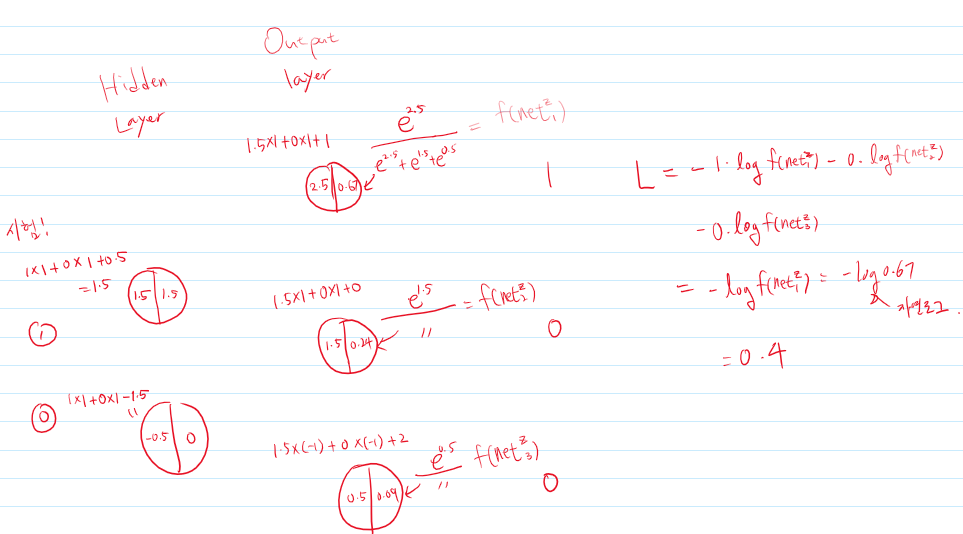 Output
layer
Hidden
Layer
1.5×1+0×1+1
e^2.5 / (e^2.5+e^1.5+e^0.5) = f(net₁ᶻ)
2.5 | 0.67
1
L = -1·log f(net₁ᶻ) - 0·log f(net₂ᶻ)
-0·log f(net₃ᶻ)
= -log f(net₁ᶻ) = -log 0.67
자연로그.
= 0.4
시험!
1×1+0×1+0.5
=1.5
1.5 | 1.5
1
1.5×1+0×1+0
e^1.5 / 〃 = f(net₂ᶻ)
1.5 | 0.24
0
0
1×1+0×1-1.5
〃
-0.5 | 0
1.5×(-1)+0×(-1)+2
e^0.5 / 〃 f(net₃ᶻ)
0.5 | 0.09
0